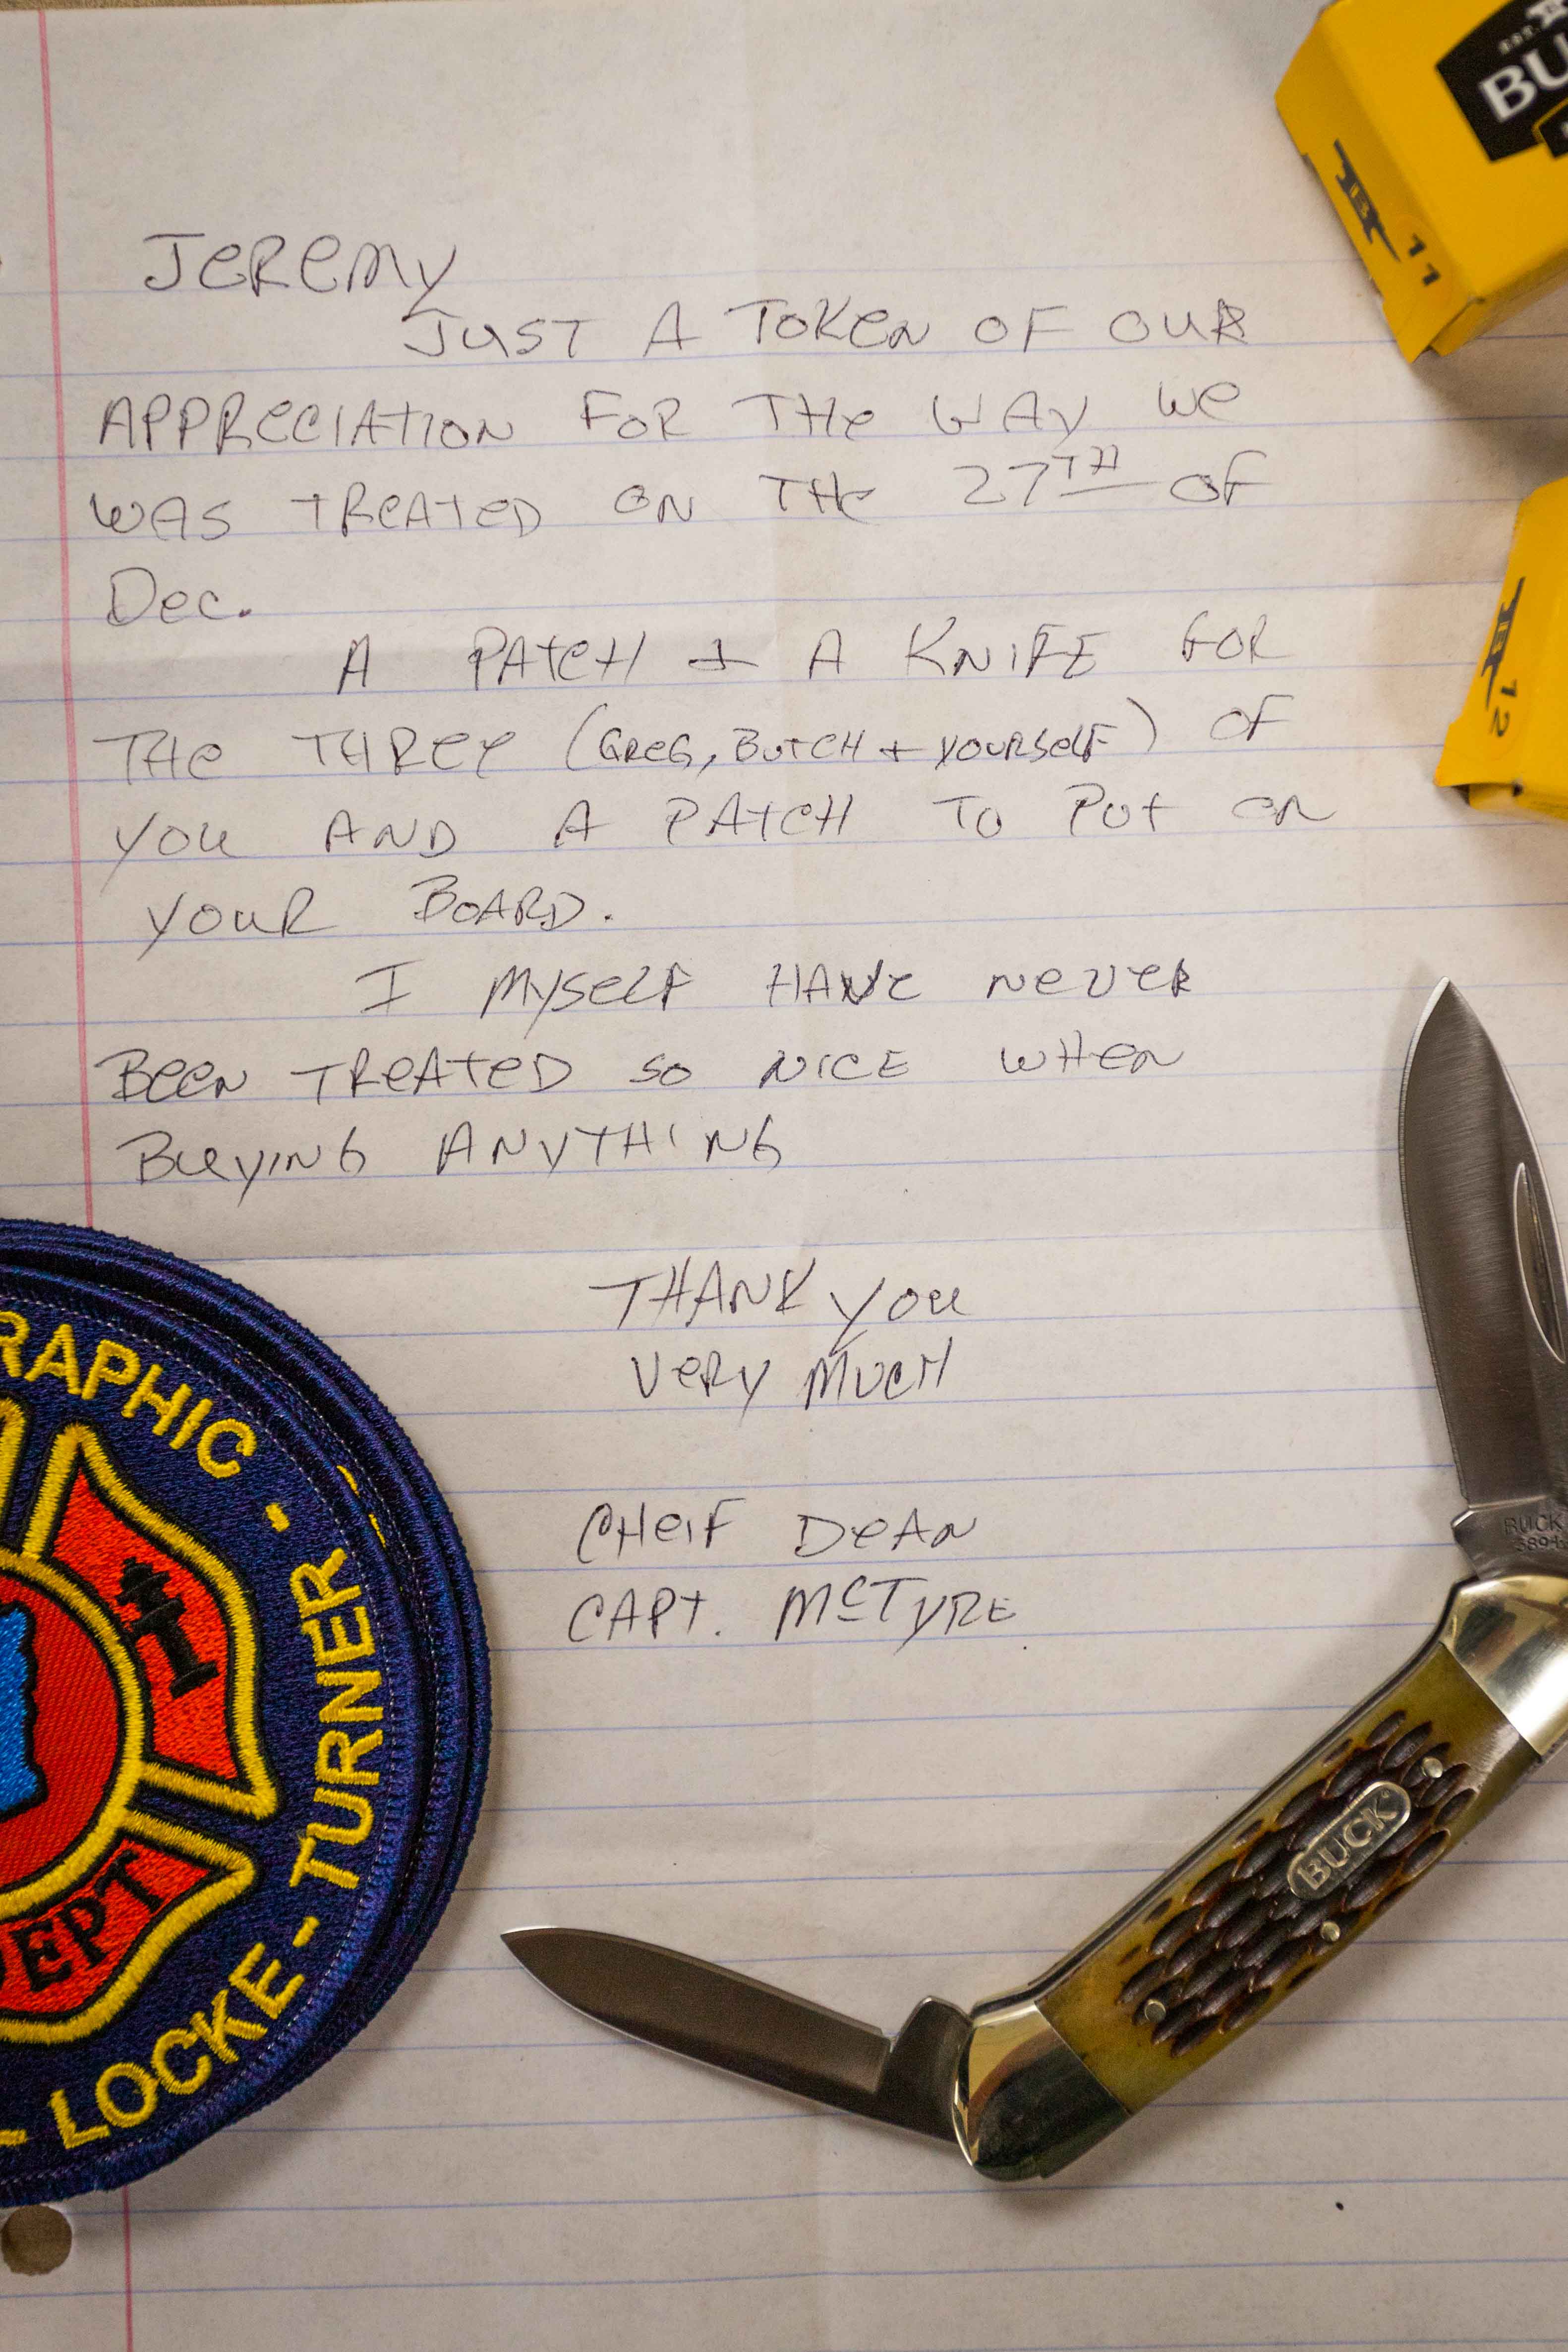 JEREMY
JUST A TOKEN OF OUR
APPRECIATION FOR THE WAY WE
WAS TREATED ON THE 27TH OF
Dec.
A PATCH + A KNIFE FOR
THE THREE (GREG, BUTCH + YOURSELF) OF
YOU AND A PATCH TO PUT ON
YOUR BOARD.
I MYSELF HAVE NEVER
BEEN TREATED SO NICE WHEN
BUYING ANYTHING
THANK YOU
VERY MUCH
CHEIF DEAN
CAPT. McTYRE
RAPHIC - TURNER - LOCKE -
EPT
BUCK
BUCK
BU
EST.
11
12